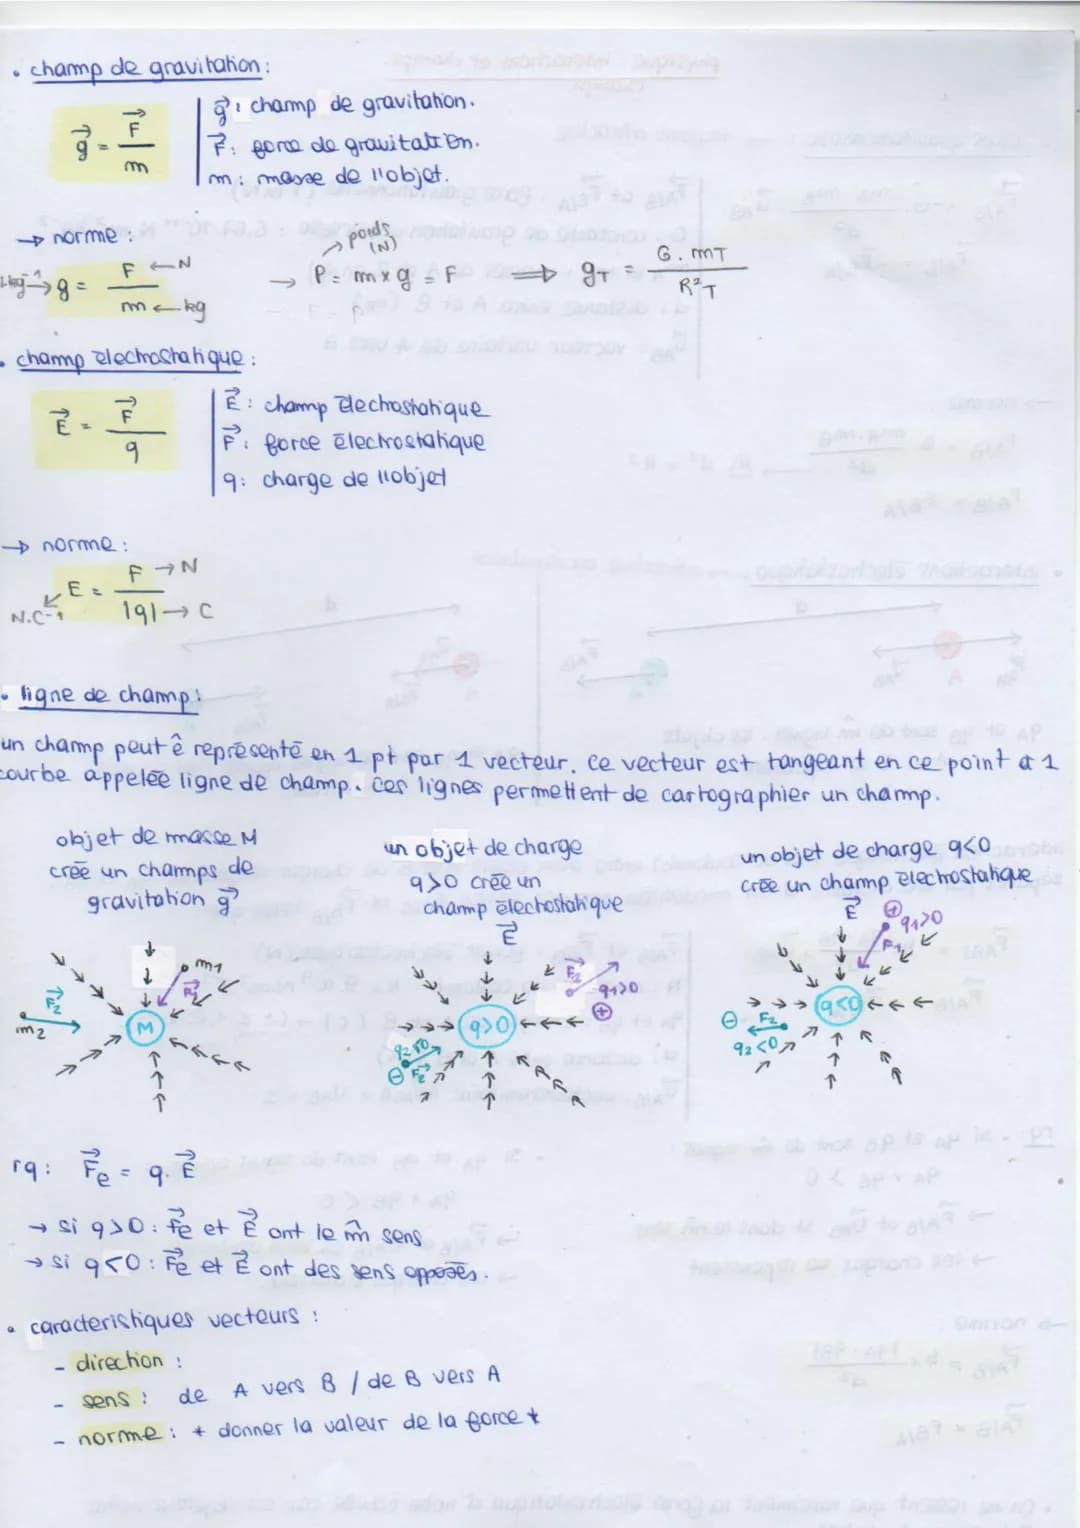 • champ de gravitation:
g⃗ = F⃗ / m
g⃗: champ de gravitation.
F⃗: force de gravitation.
m: masse de l'objet.
→ norme:
g = F ← N / m ← kg
→ P = m x g = F ⟹ gT = G. mT / R²T
→ poids (N)
• champ électrostatique:
E⃗ = F⃗ / q
E⃗: champ électrostatique
F⃗: force électrostatique
q: charge de l'objet
→ norme:
N.C⁻¹ E = F → N / |q| → C
• ligne de champ:
un champ peut ê représenté en 1 pt par 1 vecteur. ce vecteur est tangeant en ce point à 1
courbe appelée ligne de champ. Ces lignes permettent de cartographier un champ.
objet de masse M
crée un champs de
gravitation g⃗
M
m1
F⃗1
F⃗2
m2
un objet de charge
q>0 crée un
champ électostatique
E⃗
q>0
F⃗2
q1>0
⊕
⊖
F⃗2
un objet de charge q<0
crée un champ électrostatique
E⃗
⊕
q1>0
F⃗1
q<0
⊖
F⃗2
q2<0
rq: F⃗e = q. E⃗
→ si q>0: F⃗e et E⃗ ont le m̂ sens
→ si q<0: F⃗e et E⃗ ont des sens opposés.
• caracteristiques vecteurs :
- direction :
- sens : de A vers B / de B vers A
- norme : * donner la valeur de la force *